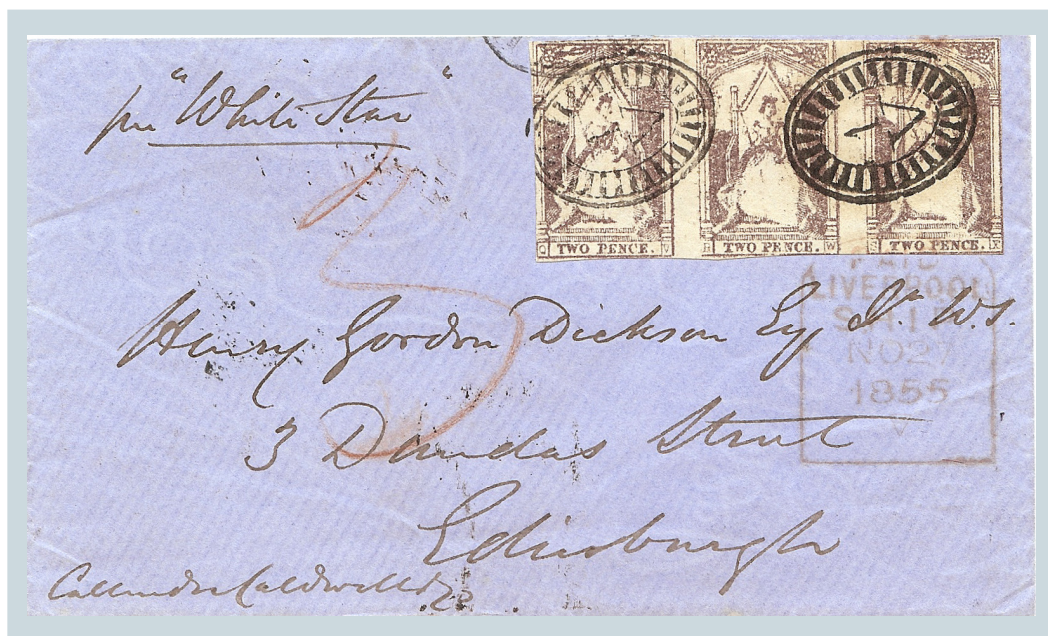 per "White Star"
TWO PENCE. TWO PENCE. TWO PENCE.
PAID
LIVERPOOL
SHIP
NO27
1855
V
3
Henry Gordon Dickson Esq Jr. W.S.
3 Dundas Street
Edinburgh
Callender Caldwell & Co